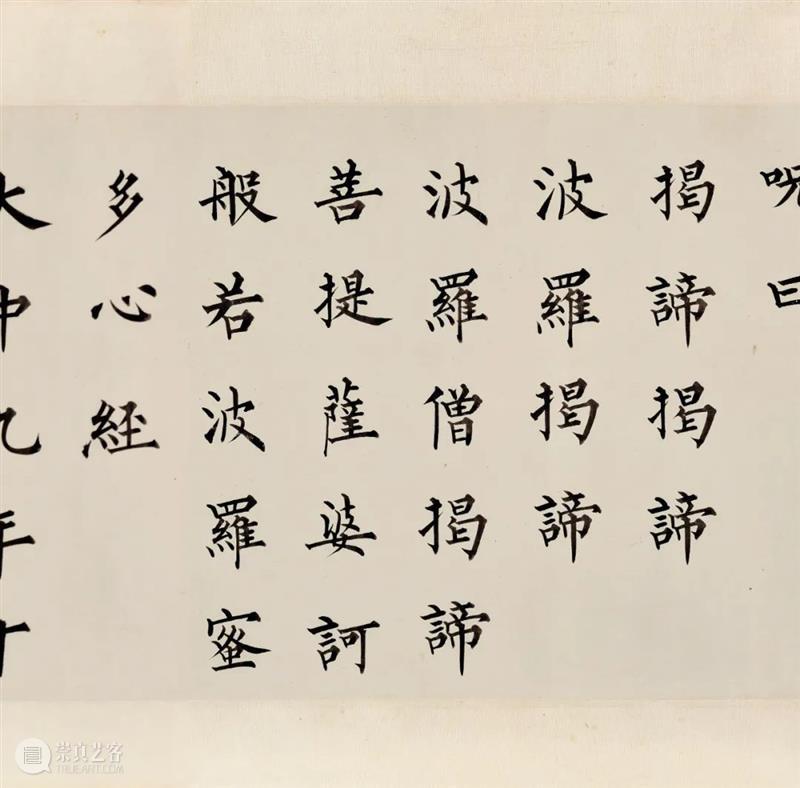 呪曰
揭諦揭諦
波羅揭諦
波羅僧揭諦
菩提薩婆訶
般若波羅蜜
多心經
大中九年十
崇真艺客
TRUEART.COM